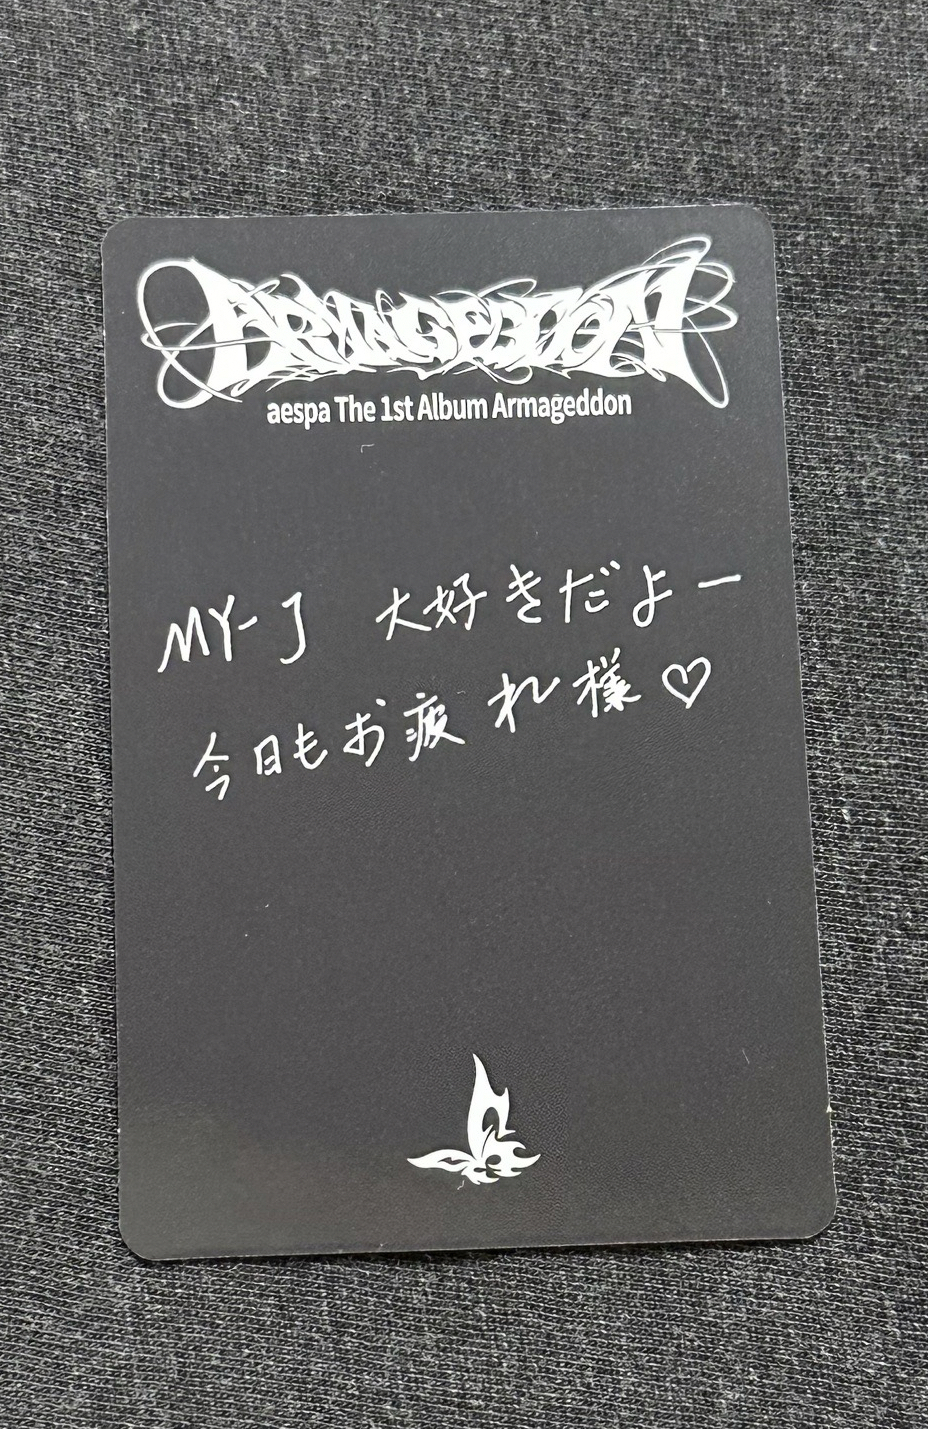 ARMAGEDDON
aespa The 1st Album Armageddon
MY-J 大好きだよー
今日もお疲れ様♡